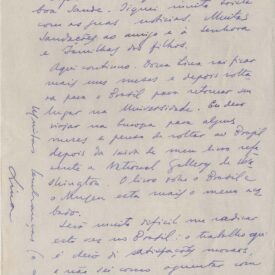 boa Saude. Fiquei muito
com as suas noticias. Muitas
saudações ao amigo e à senhora
e familhas dos filhos.
Aqui continuo. Dona Lina vai ficar
mais uns meses e depois volta
para o Brasil para retomar seu
lugar na Universidade. Eu devo
viajar na Europa para alguns
meses e penso de voltar ao Brasil
depois da saida do meu livro
a National Gallery de Wa
shington. O livro sobre o Brasil e
o Museu está mais o menos aca
bado.
Será muito dificil me radicar
este vez no Brasil: o trabalho que
é deiro di satisfações morais,
e não sei como aguentar com
Muitas lembranças